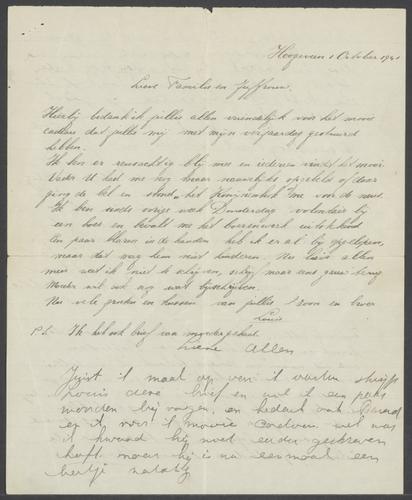 Hoogeveen 1 October 1941
Lieve Familie en Juffrouw.
Hierbij bedank ik jullie allen vriendelijk voor het mooie
cadeau dat jullie mij met mijn verjaardag gestuurd
hebben.
Ik ben er reusachtig blij mee en iedereen vindt het mooi.
Vader U had me nog maar nauwelijks opgebeld of daar
ging de bel en stond het me voor de neus.
Ik ben sinds vorige week Donderdag volontair bij
een boer en bevalt me het boerenwerk uitstekend
Een paar blaren in de handen heb ik er al bij opgelopen,
maar dat mag hem niet hinderen. Nu liefst allen
meer weet ik niet te schrijven, schrijf maar eens gauw terug
Moeder wil ook nog wat bijschrijven.
Nu vele groeten en kussen van jullie zoon en broer
Louis
P.S. Ik heb ook brief van moeder gehad.
Lieve Allen
Juist ik maal op ven it
Louis deze brief en wil ik een paar
woorden bij voegen, en bedank ook
en it voor it mooie cadeau. wel was
it hij niet eerder geschreven
heeft maar hij is nu eenmaal een
beetje